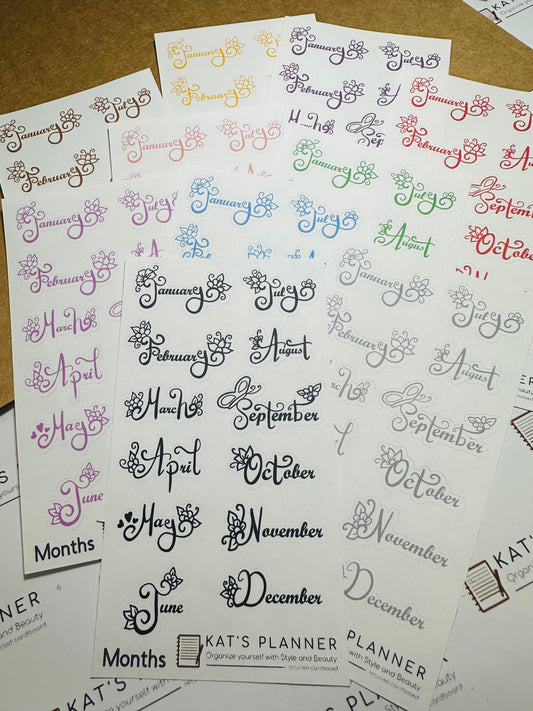 January
July
February
January
July
February
M
January
July
February
January
July
February
March
Sep
January
July
February
Au
September
October
January
July
August
January
July
February
January
July
February
March
April
May
June
Months
January
July
February
August
March
September
April
October
May
November
June
December
Months
KAT'S PLANNER
Organize yourself with Style and Beauty
recycled cardboard
January
July
February
August
March
September
October
November
December
KAT'S PLANNER
with Style and Beauty
recycled cardboard
KAT'S
PLANNER
Style and Beauty
cardboard
KAT'S
KAT'S P
Organize